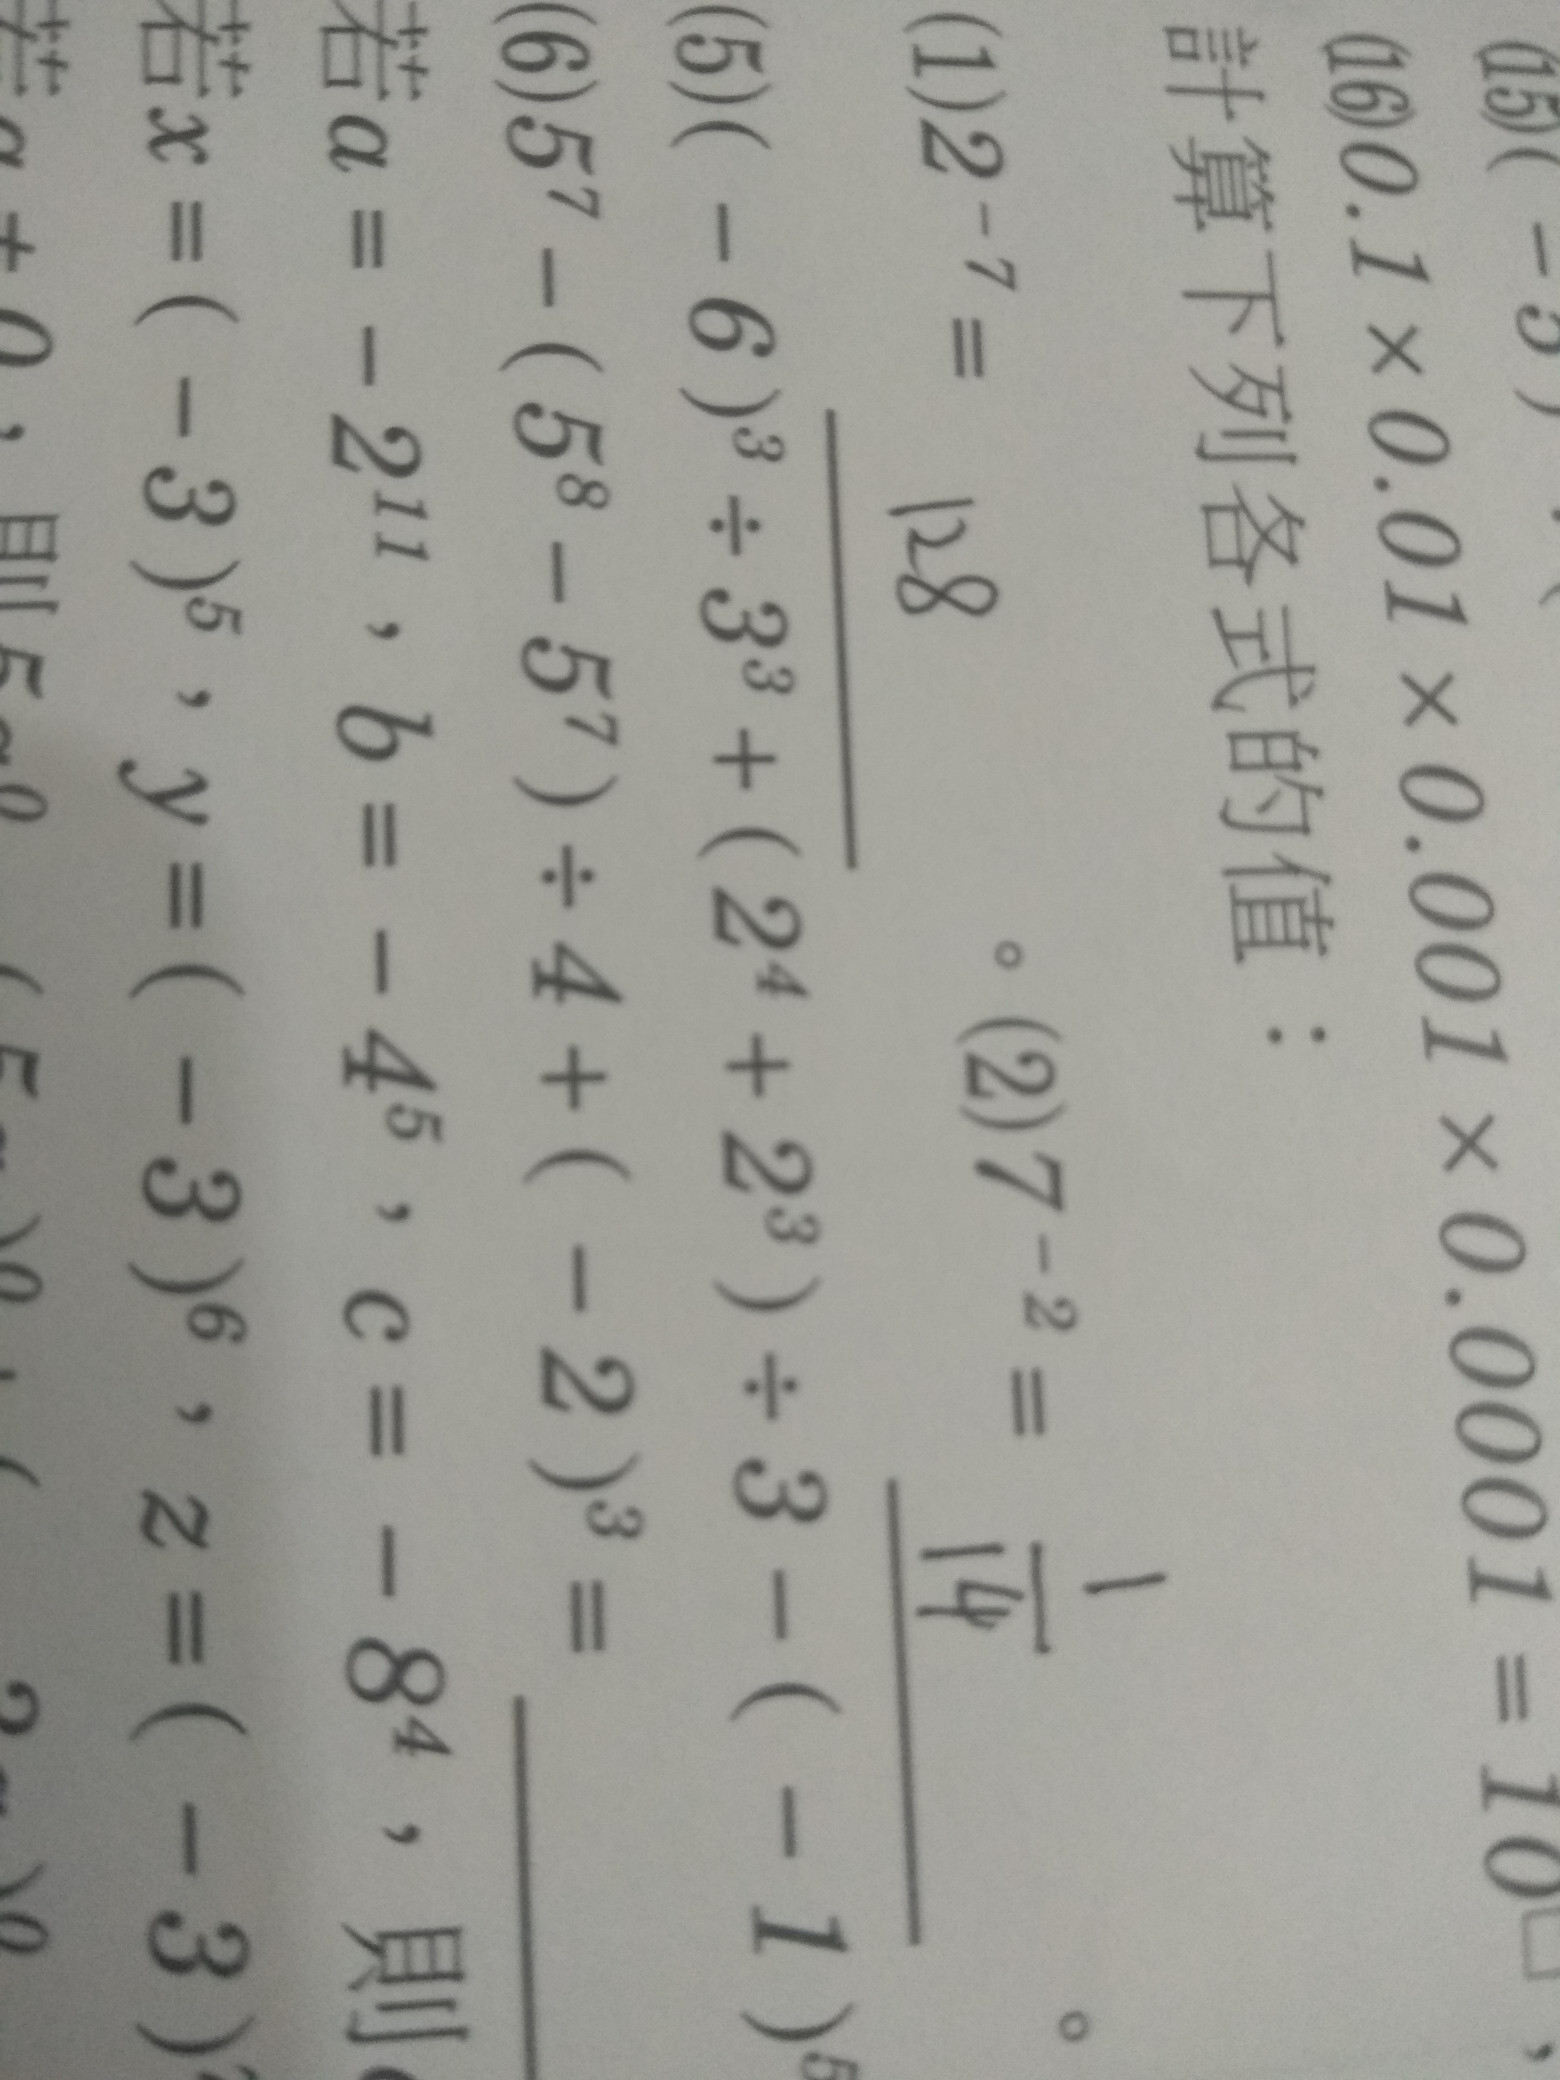 (15)( - 5 )
(16)0.1 × 0.01 × 0.001 × 0.0001 = 10□ ,
計算下列各式的值：
(1)2⁻⁷ = 128 。(2)7⁻² = 1/14 。
(5)( - 6 )³ ÷ 3³ + ( 2⁴ + 2³ ) ÷ 3 - ( - 1 )⁵
(6)5⁷ - ( 5⁸ - 5⁷ ) ÷ 4 + ( - 2 )³ =
若a = - 2¹¹ , b = - 4⁵ , c = - 8⁴ , 則
若x = ( - 3 )⁵ , y = ( - 3 )⁶ , z = ( - 3 )
若a ≠ 0 , 則5a⁰